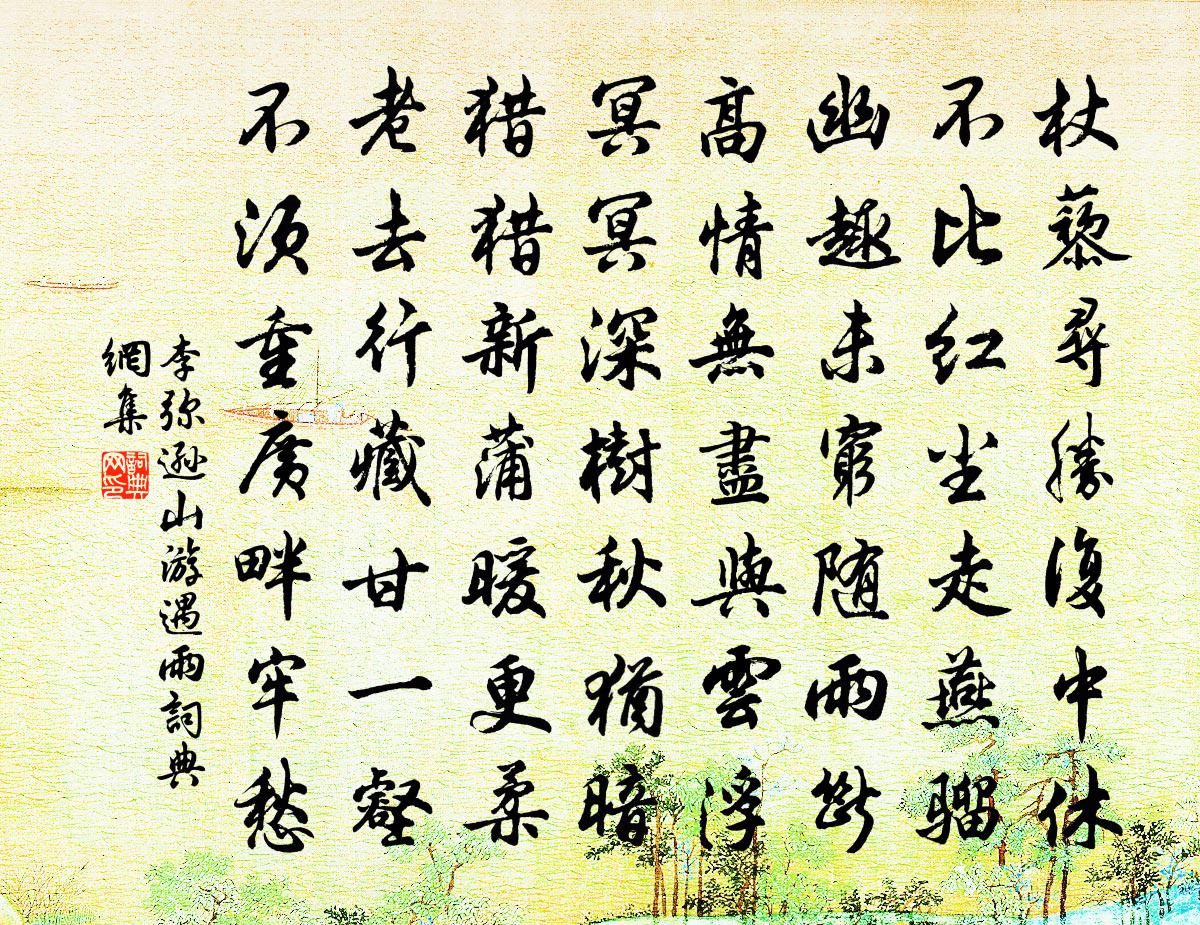 杖藜尋勝復中休
不比红尘走燕騮
幽趣未窮随雨斷
高情無盡與雲浮
冥冥深樹秋猶暗
猎猎新蒲暖更柔
老去行藏甘一壑
不须重廣畔牢愁
李弥遜山游遇雨詞典
網集
詞典
网